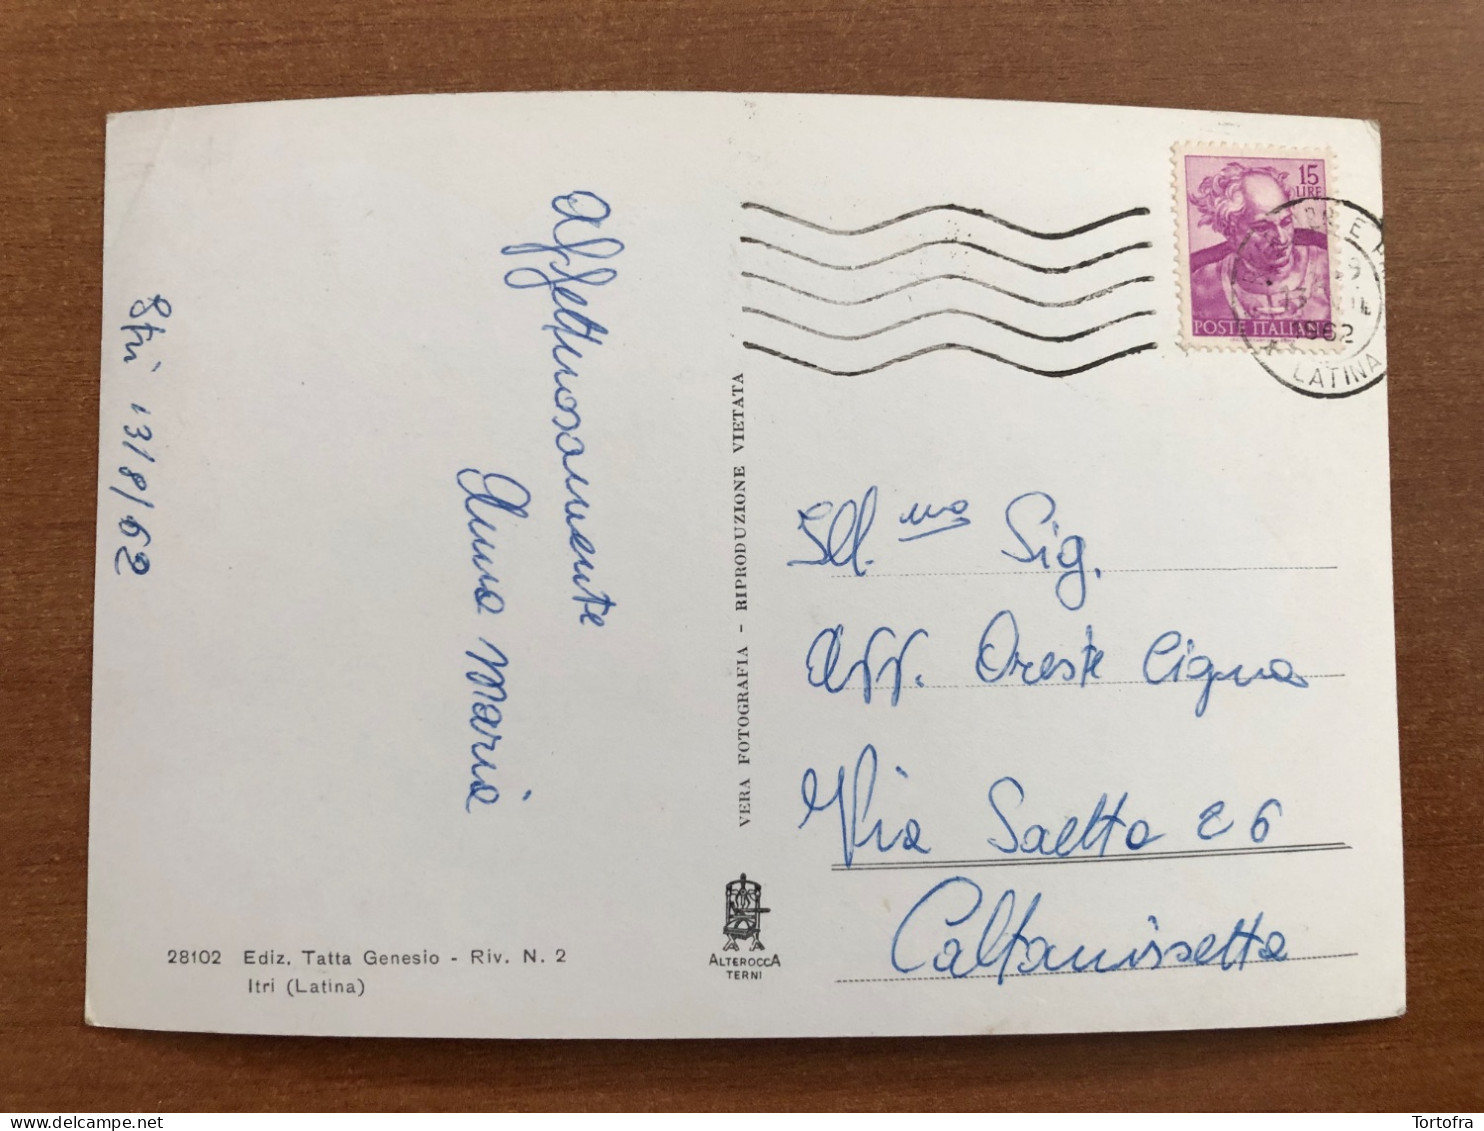 Itri 13/8/62
Affettuosamente
Anna Maria
28102 Ediz. Tatta Genesio - Riv. N. 2
Itri (Latina)
VERA FOTOGRAFIA - RIPRODUZIONE VIETATA
ALTEROCCA
TERNI
15
LIRE
POSTE ITALIANE
1962
LATINA
Ill.mo Sig.
Avv. Oreste Cigna
Via Saetta 26
Caltanissetta
Tortofra